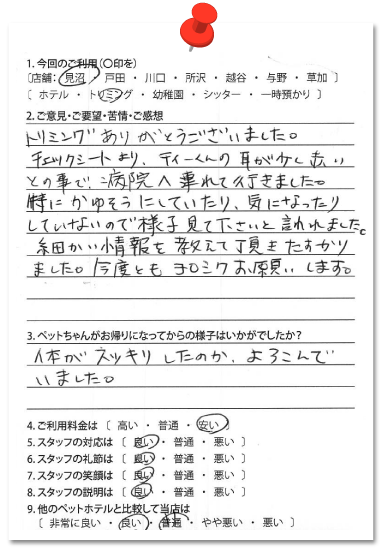 1. 今回のご利用(〇印を)
〔店舗： 見沼 ・ 戸田 ・ 川口 ・ 所沢 ・ 越谷 ・ 与野 ・ 草加 〕
〔 ホテル ・ トリミング ・ 幼稚園 ・ シッター ・ 一時預かり 〕
2. ご意見・ご要望・苦情・ご感想
トリミングありがとうございました。
チェックシートより、ティーくんの耳が少し赤い
との事で、病院へ連れて行きました。
特にかゆそうにしていたり、気になったり
していないので様子見て下さいと言われました。
細かい情報を教えて頂きたすかり
ました。今度ともヨロシクお願いします。
3. ペットちゃんがお帰りになってからの様子はいかがでしたか？
体がスッキリしたのか、よろこんで
いました。
4. ご利用料金は 〔 高い ・ 普通 ・ 安い 〕
5. スタッフの対応は 〔 良い ・ 普通 ・ 悪い 〕
6. スタッフの礼節は 〔 良い ・ 普通 ・ 悪い 〕
7. スタッフの笑顔は 〔 良い ・ 普通 ・ 悪い 〕
8. スタッフの説明は 〔 良い ・ 普通 ・ 悪い 〕
9. 他のペットホテルと比較して当店は
〔 非常に良い ・ 良い ・ 普通 ・ やや悪い ・ 悪い 〕